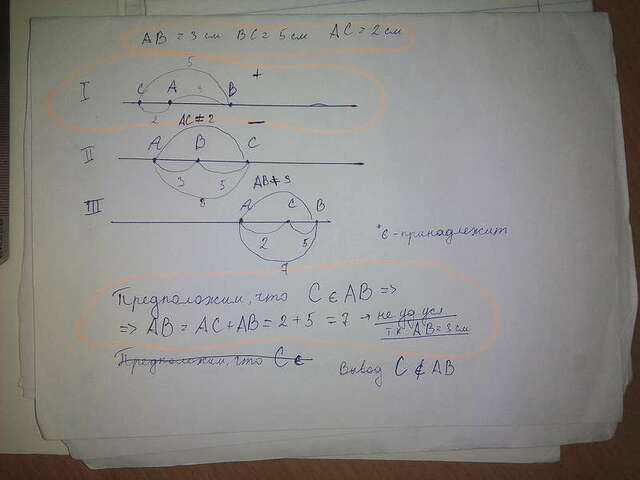 AB = 3 см BC = 5 см AC = 2 см
5
I C A B +
3
2
AC ≠ 2 —
II A B C
3 5
8
AB ≠ 3
III A C B
2 5
7
*∈ - принадлежит
Предположим, что C ∈ AB =>
=> AB = AC + AB = 2 + 5 = 7 → не уд. усл.
т.к. AB = 3 см
Предположим, что C ∈
Вывод C ∉ AB